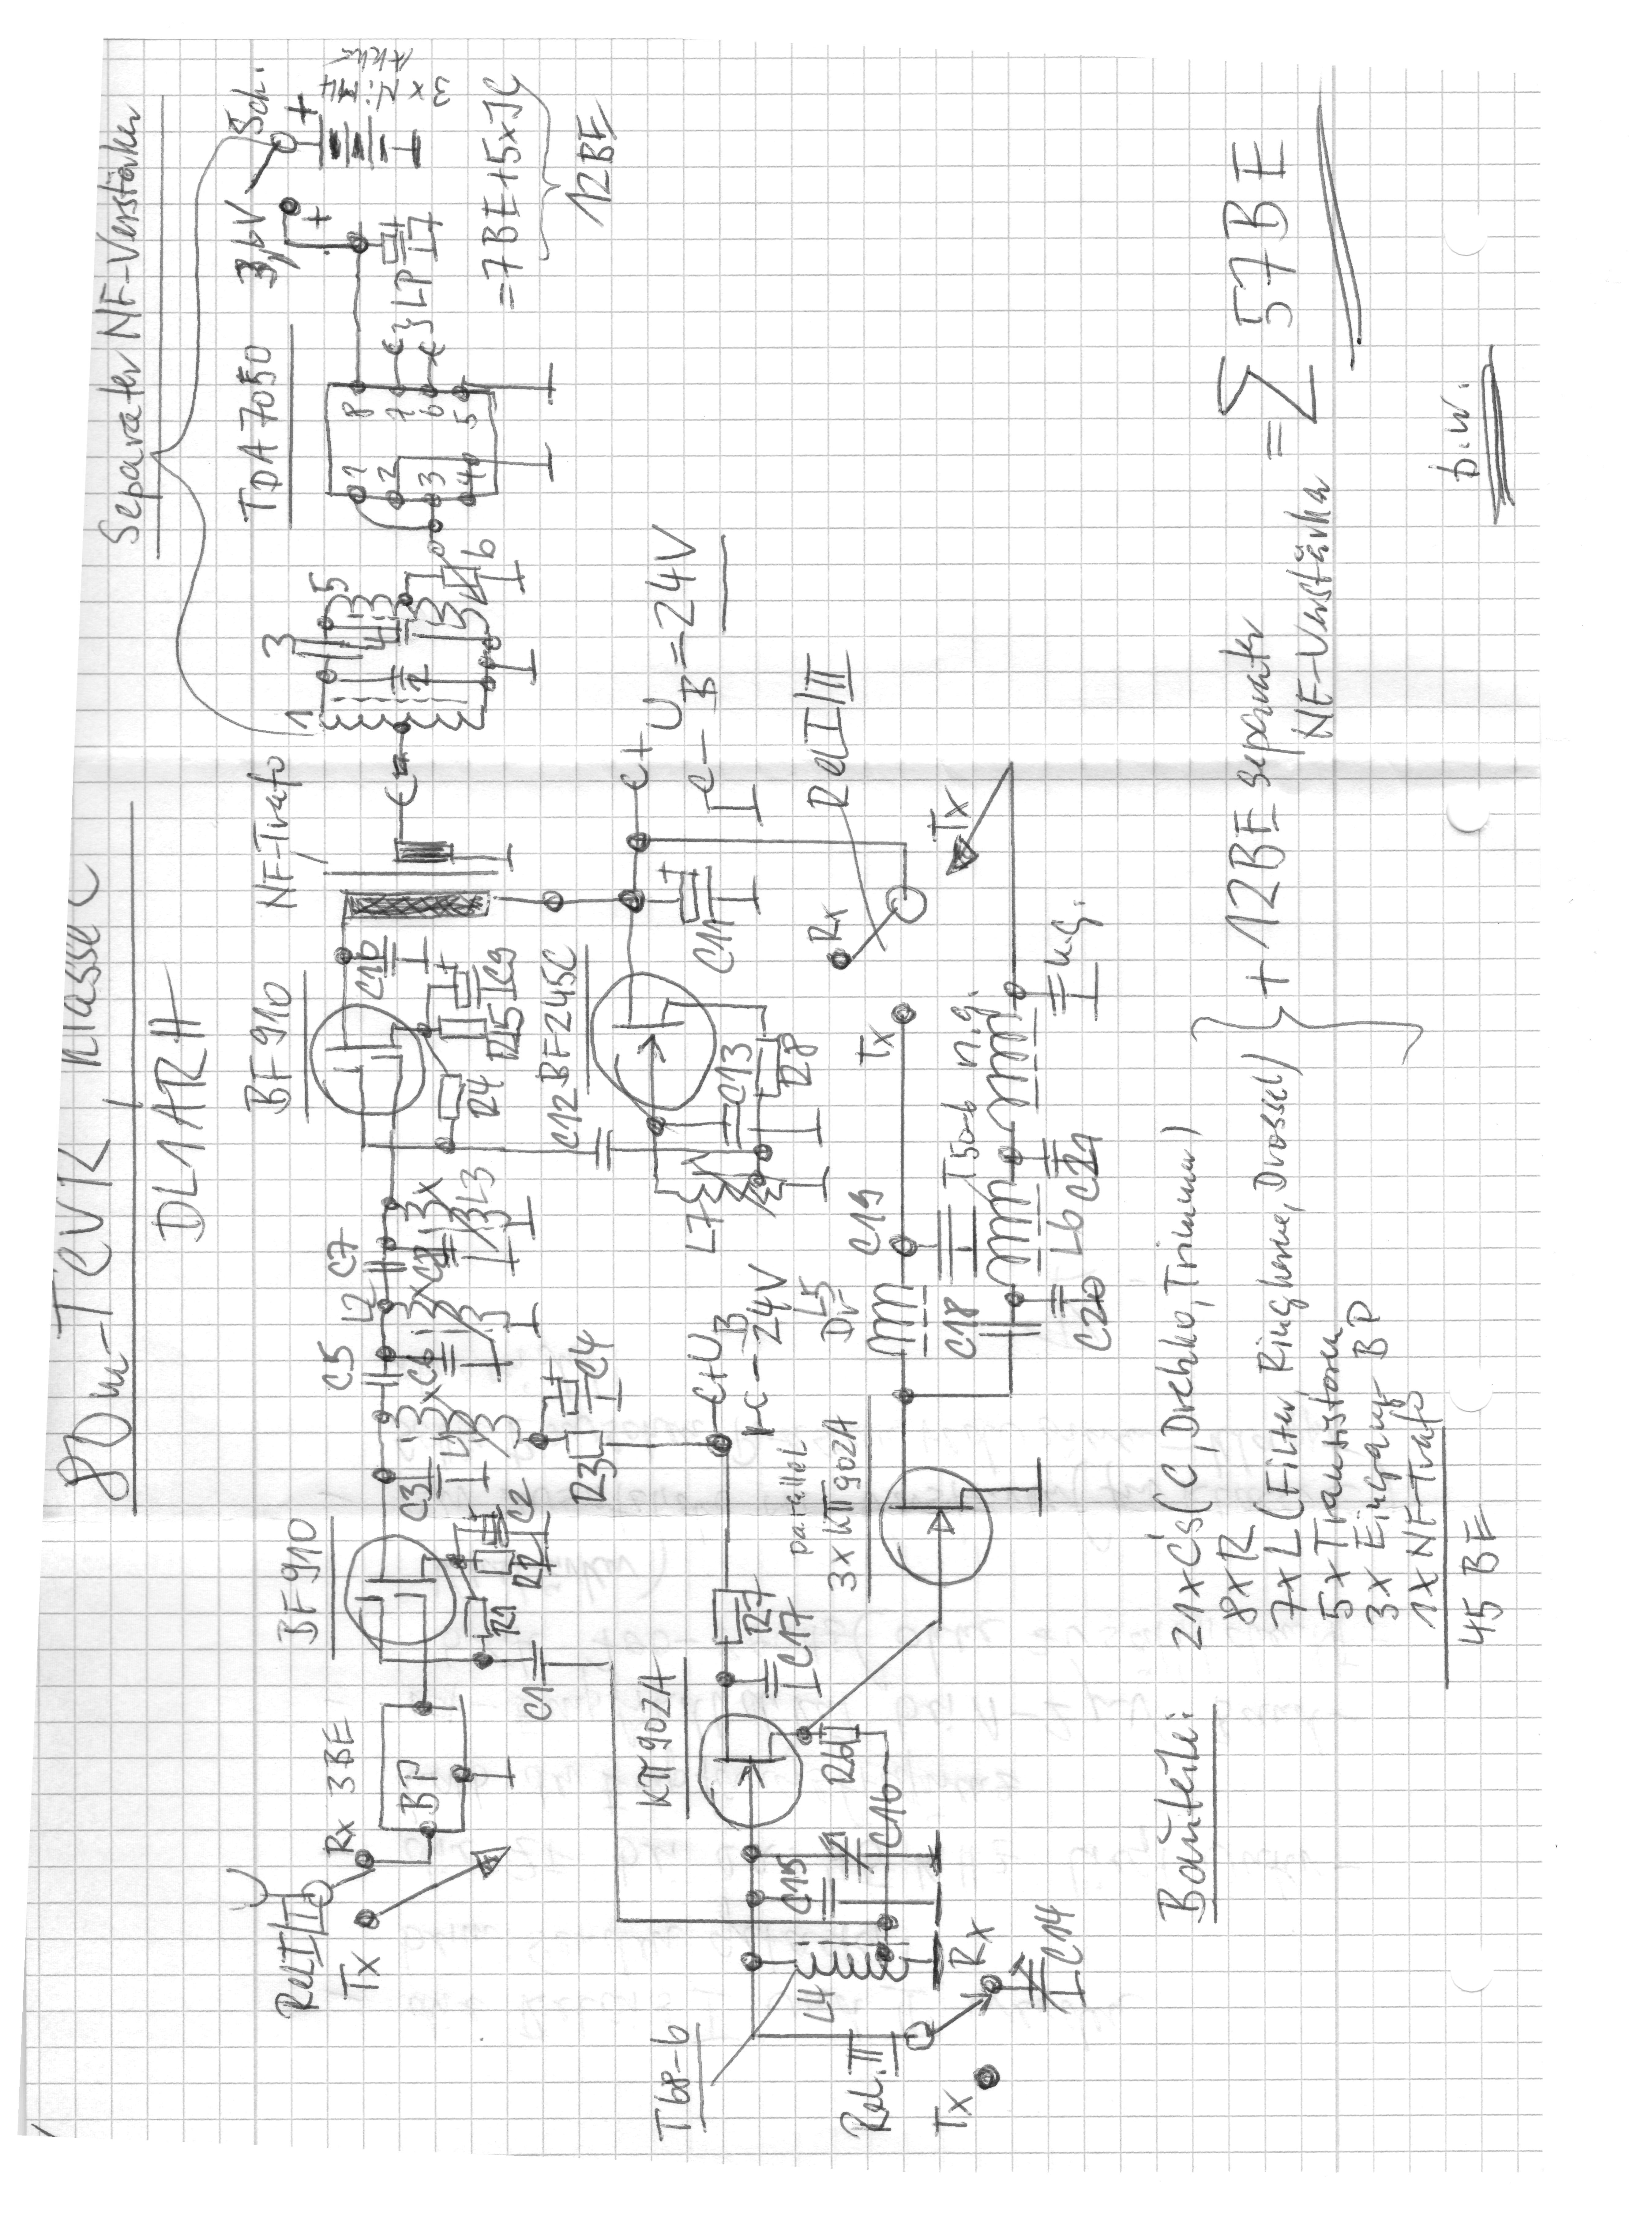 80m-TCVR, Klasse C
DL1ARH
Separater NF-Verstärker
Rel I/II
Tx
Rx 3BE
BP
BF910
R1
R2
C2
C1
C3
C5
L2
C6
C7
3x
L3
R3
C4
BF910
C10
R4
R5
C9
NF-Trafo
1
3
5
2
4
6
TDA7050
1
2
3
4
8
7
6
5
LP
3,6V
Sch.
+
3x NiMH
Akku
=7BE+5xIC
12BE
C12
BF245C
C13
R8
L7
C11
+
+U
B
=24V
-
T68-6
Rel. II
Tx
Rx
C14
L4
C15
C16
KП902A
R6
C17
R7
+U
B
-24V
parallel
3xKП902A
L5
Dr
C19
Tx
Rx
Rel I/II
Tx
C18
T50-6
n.g.
C20
L6
C21
n.g.
Bauteile:
21xC's (C, Drehko, Trimm)
8xR
7xL (Filter Ringkerne, Drossel)
5xTransistoren
3x Eingangs BP
1xNF-Trafo
45 BE
+ 12BE separater
NF-Verstärker
= Σ 57BE
b.w.